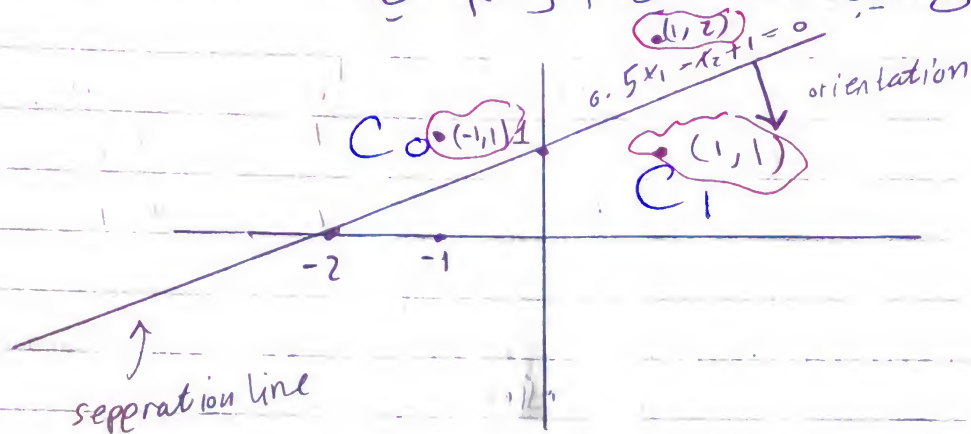 (1, 2)
0.5x₁ - x₂ + 1 = 0
orientation
C₀ (-1,1) 1
(1,1)
C₁
-2 -1
sepperation line